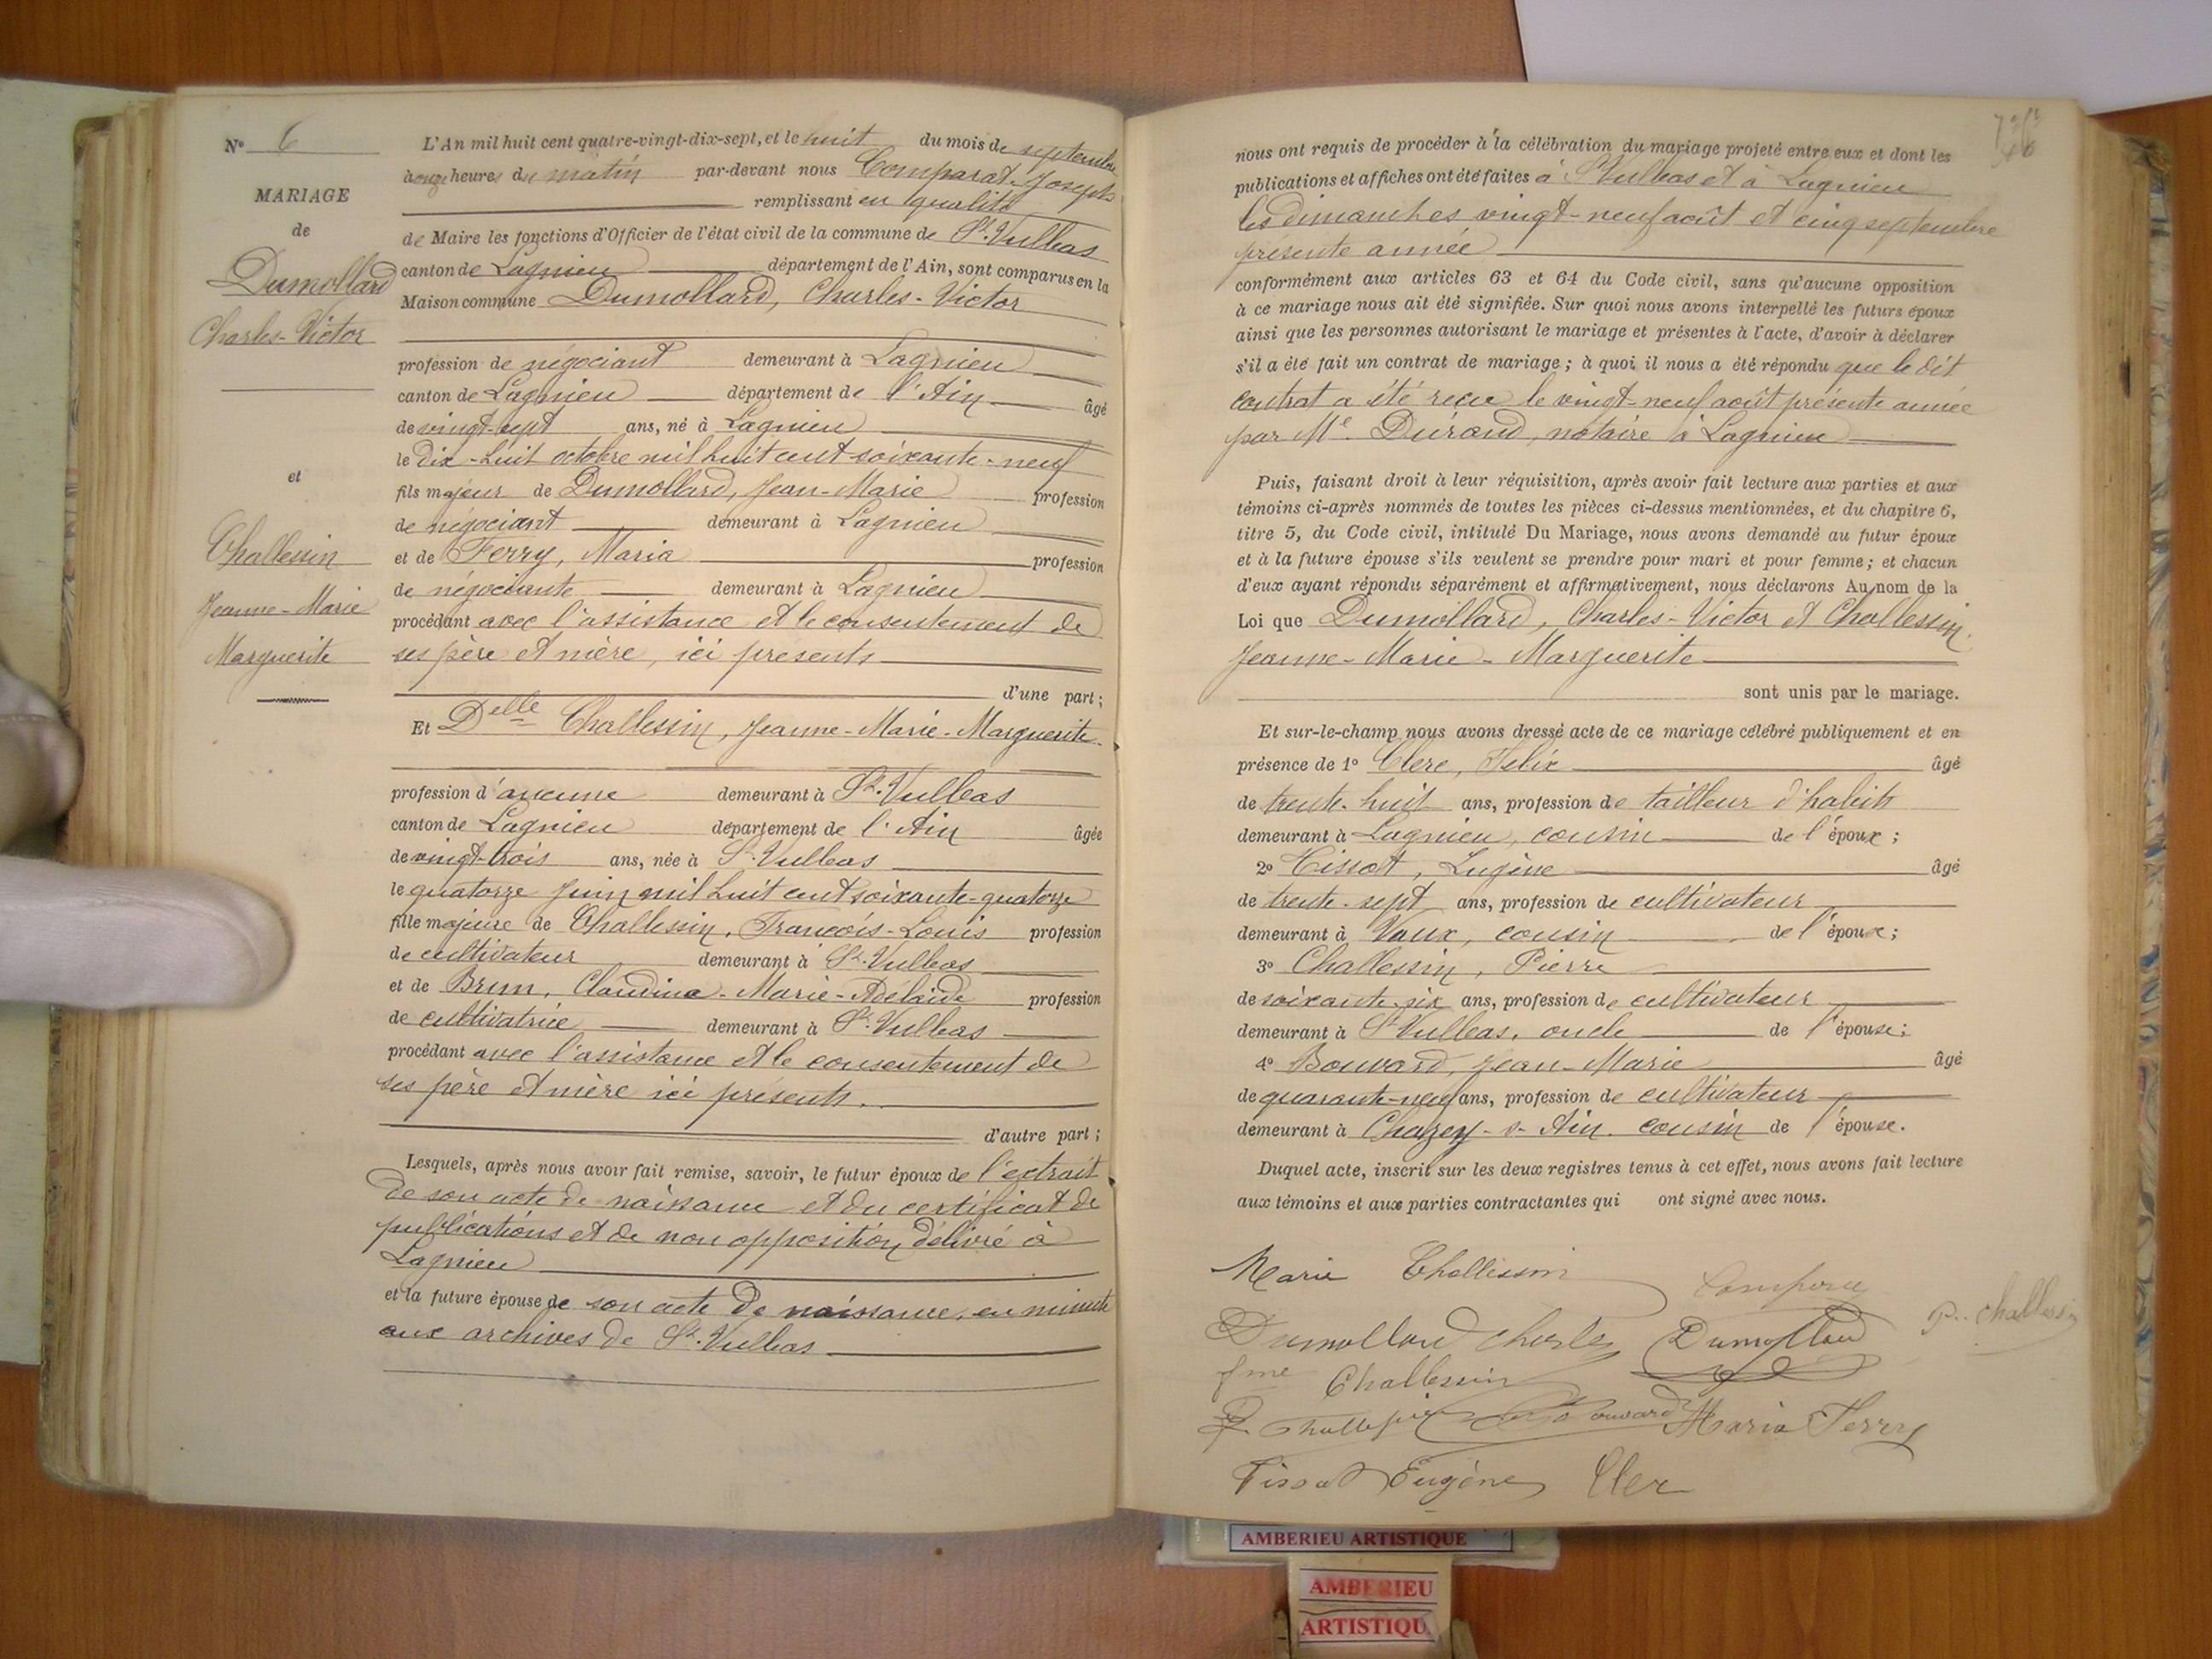 N° 6
MARIAGE
de
Dumollard
Charles-Victor
et
Challessin
Jeanne-Marie
Marguerite
L'An mil huit cent quatre-vingt-dix-sept, et le huit du mois de septembre
à onze heures du matin par-devant nous Comparat Joseph
remplissant en qualité
de Maire les fonctions d'Officier de l'état civil de la commune de St. Vulbas
canton de Lagnieu département de l'Ain, sont comparus en la
Maison commune Dumollard, Charles-Victor
profession de négociant demeurant à Lagnieu
canton de Lagnieu département de l'Ain âgé
de vingt-sept ans, né à Lagnieu
le dix-huit octobre mil huit cent soixante-neuf
fils majeur de Dumollard, Jean-Marie profession
de négociant demeurant à Lagnieu
et de Ferry, Maria profession
de négociante demeurant à Lagnieu
procédant avec l'assistance et le consentement de
ses père et mère, ici présents
d'une part;
Et Delle Challessin, Jeanne-Marie-Marguerite
profession d'aucune demeurant à St. Vulbas
canton de Lagnieu département de l'Ain âgée
de vingt-trois ans, née à St. Vulbas
le quatorze juin mil huit cent soixante-quatorze
fille majeure de Challessin, François-Louis profession
de cultivateur demeurant à St. Vulbas
et de Brun, Claudine-Marie-Adélaïde profession
de cultivatrice demeurant à St. Vulbas
procédant avec l'assistance et le consentement de
ses père et mère ici présents.
d'autre part;
Lesquels, après nous avoir fait remise, savoir, le futur époux de l'extrait
de son acte de naissance et du certificat de
publications et de non opposition délivré à
Lagnieu
et la future épouse de son acte de naissance, en minute
aux archives de St. Vulbas
nous ont requis de procéder à la célébration du mariage projeté entre eux et dont les
publications et affiches ont été faites à St Vulbas et à Lagnieu
les dimanches vingt-neuf août et cinq septembre
présente année
conformément aux articles 63 et 64 du Code civil, sans qu'aucune opposition
à ce mariage nous ait été signifiée. Sur quoi nous avons interpellé les futurs époux
ainsi que les personnes autorisant le mariage et présentes à l'acte, d'avoir à déclarer
s'il a été fait un contrat de mariage; à quoi il nous a été répondu que le dit
contrat a été reçu le vingt-neuf août présente année
par Me. Durand, notaire à Lagnieu
Puis, faisant droit à leur réquisition, après avoir fait lecture aux parties et aux
témoins ci-après nommés de toutes les pièces ci-dessus mentionnées, et du chapitre 6,
titre 5, du Code civil, intitulé Du Mariage, nous avons demandé au futur époux
et à la future épouse s'ils veulent se prendre pour mari et pour femme; et chacun
d'eux ayant répondu séparément et affirmativement, nous déclarons Au nom de la
Loi que Dumollard, Charles-Victor et Challessin
Jeanne-Marie-Marguerite
sont unis par le mariage.
Et sur-le-champ nous avons dressé acte de ce mariage célébré publiquement et en
présence de 1° Clere, Félix âgé
de trente-huit ans, profession de tailleur d'habits
demeurant à Lagnieu, cousin de l'époux;
2° Tissot, Eugène âgé
de trente-sept ans, profession de cultivateur
demeurant à Vaux, cousin de l'époux;
3° Challessin, Pierre
de soixante-six ans, profession de cultivateur
demeurant à St Vulbas, oncle de l'épouse;
4° Bouvard, Jean-Marie âgé
de quarante-neuf ans, profession de cultivateur
demeurant à Chazey-s-Ain. cousin de l'épouse.
Duquel acte, inscrit sur les deux registres tenus à cet effet, nous avons fait lecture
aux témoins et aux parties contractantes qui ont signé avec nous.
Marie Challessin
Dumollard Charles Dumollard P. Challessin
fme Challessin
Bouvard Maria Ferry
Tissot Eugène Cler
AMBERIEU ARTISTIQUE
AMBERIEU
ARTISTIQU